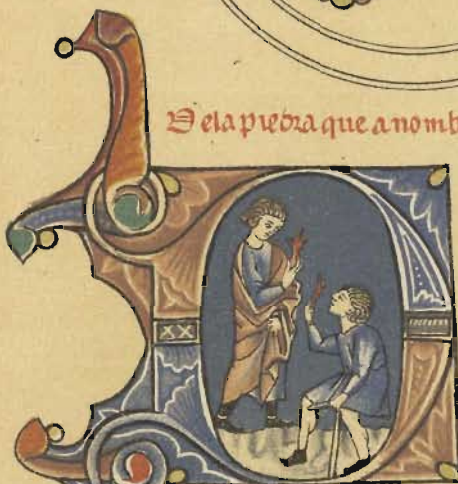 De la piedra que a nomb
XX